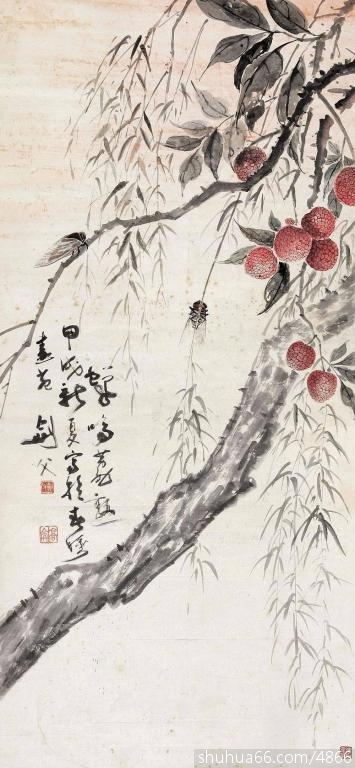 蟬鳴荔熟
甲戌新夏寫於春睡
畫苑
劍父
shuhua66.com/4866